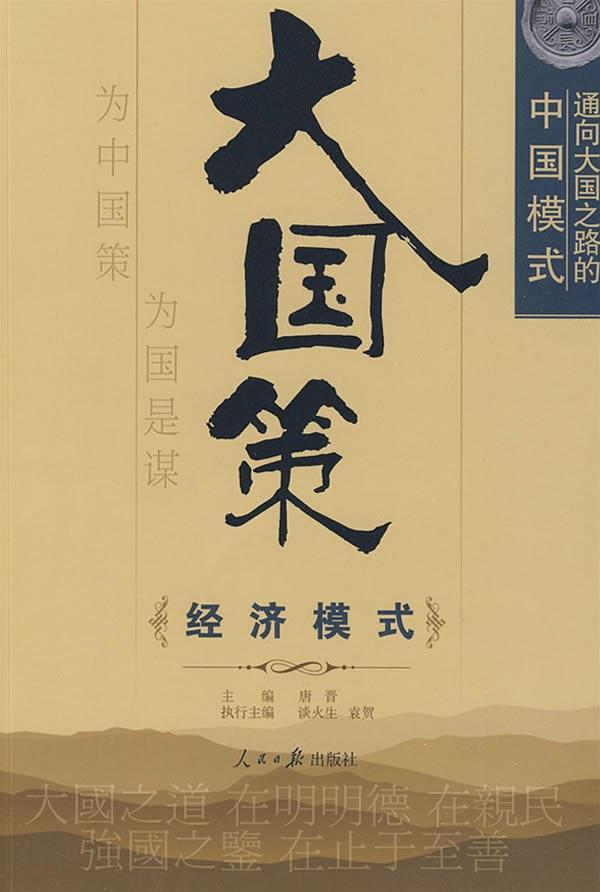 通向大国之路的
中国模式
大国策
为中国策
为国是谋
经济模式
主编 唐晋
执行主编 谈火生 袁贺
人民日报出版社
大國之道 在明明德 在親民
強國之鑒 在止于至善